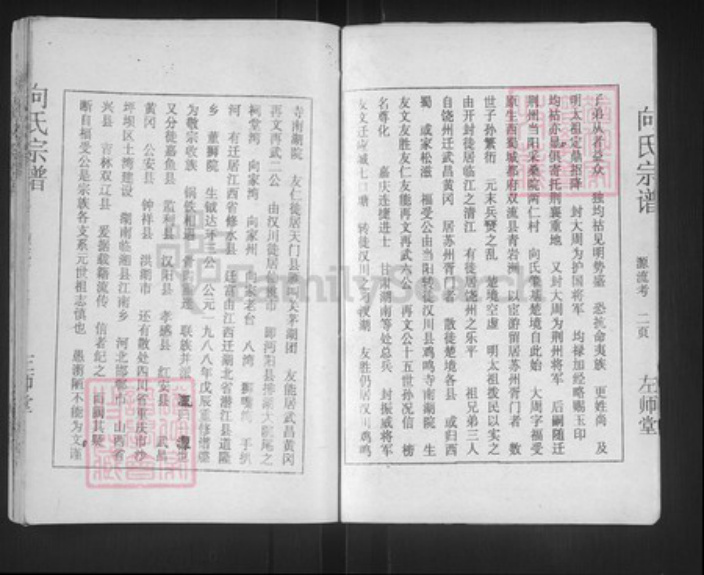 向氏宗谱
源流考 二页
左师堂
子弟从者益众 独均祜见明势盛 恐抗命夷族 更姓尚 及
明太祖定鼎拒降 封大周为护国将军 均禄加经略赐玉印
均祜亦显俱寄托荆襄重地 又封大周为荆州将军 后嗣随迁
荆州当阳采桑院两仁村 向氏肇基楚境自此始 大周字福受
原生西蜀城都府双流县青岩洲 以宦游留居苏州胥门者 数
世子孙繁衍 元末兵燹之乱 楚境空虚 明太祖拨民以实之
由开封徒居临江之清江 有徒居饶州之乐平 祖兄弟三人
自饶州迁武昌黄冈 居苏州胥门者 散徒楚境各县 或归西
蜀 或家松滋 福受公由当阳转徒汉川县鸡鸣寺南湖院 生
友文友胜友仁友能再文再武六公 再文公十五世孙况信 榜
名尊化 嘉庆连捷进士 甘肃湖南等处总兵 封振威将军
友文迁应城七口塘 转徒汉川 湖 友胜仍居汉川鸡鸣
寺南湖院 友仁徒居天门县 天茅湖团 友能居武昌黄冈
再文再武二公 由汉川徒居仙桃市 即沔阳县排湖大 尾之
祠堂湾 向家湾 向家州 向家老台 八湾 狮嘴湾 手扒
河 有迁居江西省修水县 迁富由江西迁湖北省潜江县道隆
乡 董狮院 生钺达平三公 公元一九八八年戊辰重修谱牒
为敬宗收族 锅铁相遇 联族并派
又分徒嘉鱼县 监利县 汉阳县 孝感县 红安县 武昌
黄冈 公安县 钟祥县 洪湖市 还有散处四川省重庆市沙
坪坝区土湾建设 湖南临湘县江南乡 河北邯郸市 山西省
兴县 吉林双辽县 爰据载籍流传 信者纪之 阙其疑
断自福受公是宗族各支系元世祖志慎也 愚衡陋不能为文谨
向氏宗谱
左师堂
FamilySearch